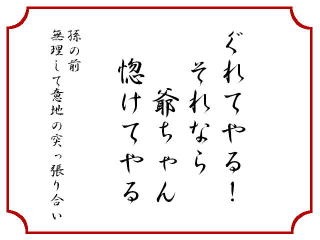 ぐれてやる！
それなら
爺ちゃん
惚けてやる
孫の前
無理して意地の突っ張り合い